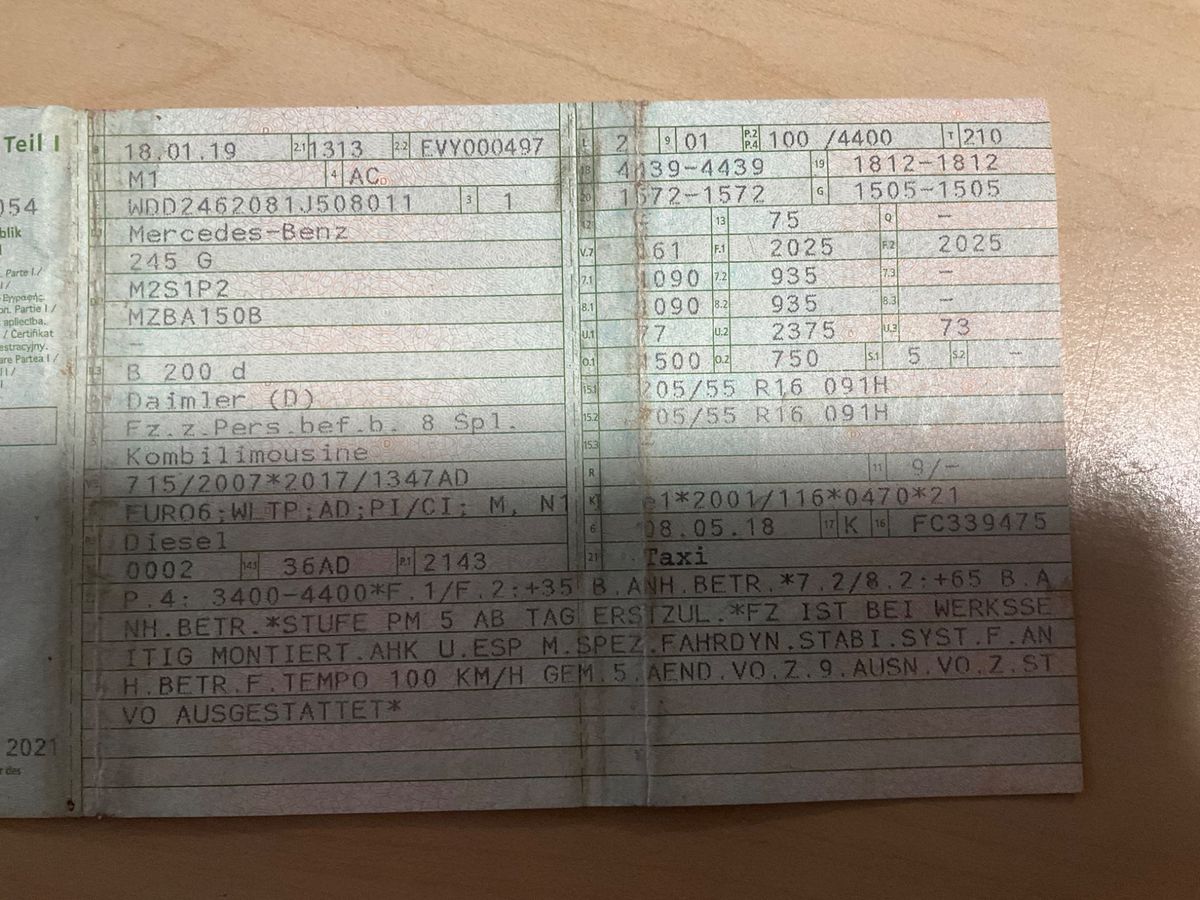 Teil I
054
blik
. Parte I /
Εγγραφής.
on. Partie I /
apliecība.
/ Certifikat
estracyjny.
are Partea I /
I I /
2021
r des
18.01.19 2.1 1313 2.2 EVY000497
M1 4 AC
WDD2462081J508011 3 1
Mercedes-Benz
245 G
M2S1P2
MZBA150B
-
B 200 d
Daimler (D)
Fz.z.Pers.bef.b. 8 Spl.
Kombilimousine
715/2007*2017/1347AD
EURO6;WLTP;AD;PI/CI; M, N1
Diesel
0002 14.1 36AD P.1 2143
L 2 9 01 P.2 P.4 100 /4400 T 210
18 4439-4439 19 1812-1812
20 1572-1572 G 1505-1505
12 - 13 75 Q -
V.7 161 F.1 2025 F.2 2025
7.1 1090 7.2 935 7.3 -
8.1 1090 8.2 935 8.3 -
U.1 77 U.2 2375 U.3 73
O.1 1500 O.2 750 S.1 5 S.2 -
15.1 205/55 R16 091H
15.2 205/55 R16 091H
15.3 -
R 11 9/-
K e1*2001/116*0470*21
6 08.05.18 17 K 16 FC339475
21 Taxi
P.4: 3400-4400*F.1/F.2:+35 B.ANH.BETR.*7.2/8.2:+65 B.A
NH.BETR.*STUFE PM 5 AB TAG ERSTZUL.*FZ IST BEI WERKSSE
ITIG MONTIERT.AHK U.ESP M.SPEZ.FAHRDYN.STABI.SYST.F.AN
H.BETR.F.TEMPO 100 KM/H GEM.5.AEND.VO.Z.9.AUSN.VO.Z.ST
VO AUSGESTATTET*